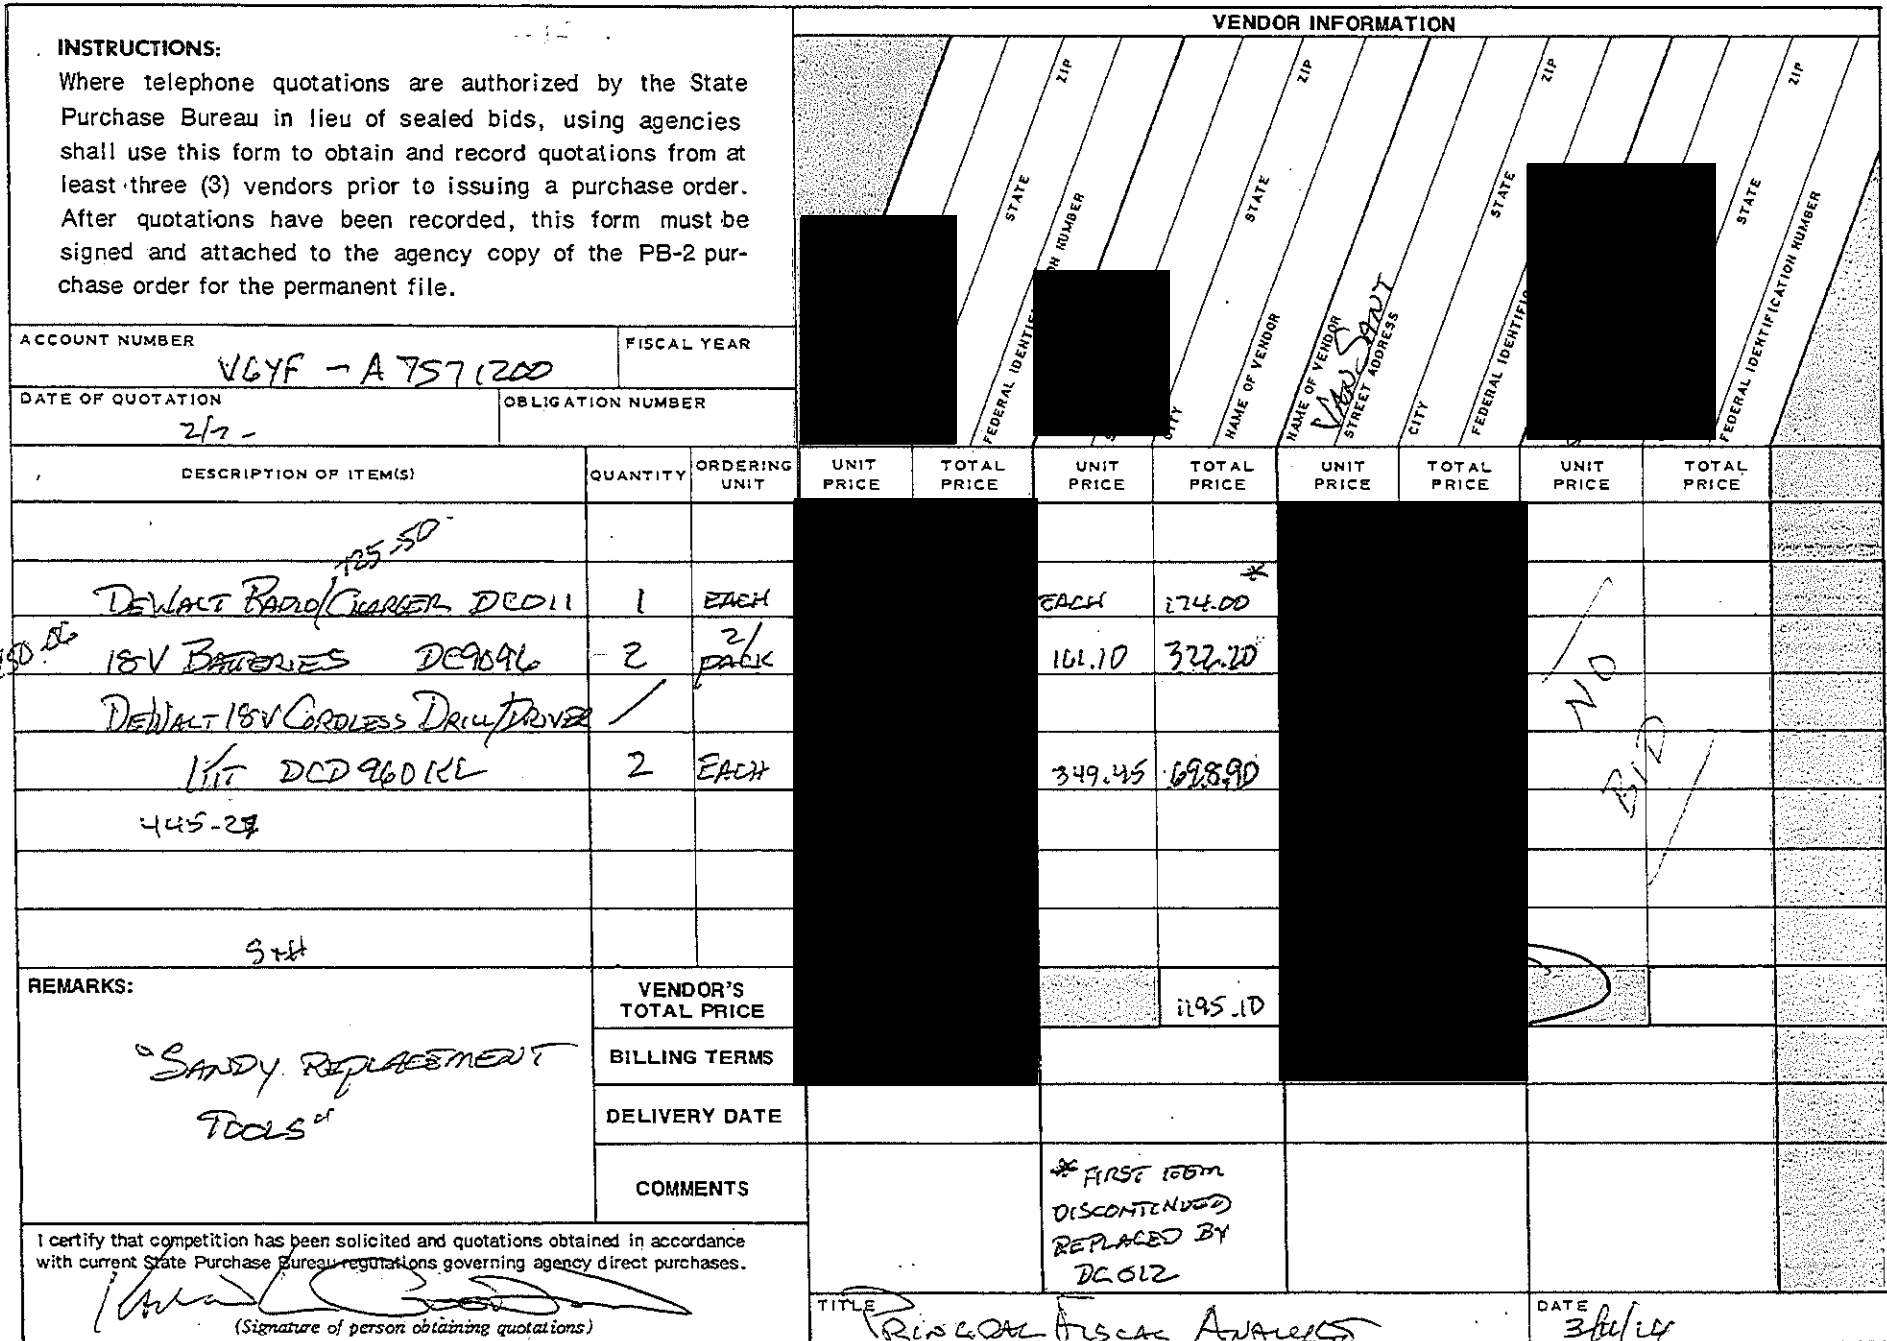 INSTRUCTIONS:
Where telephone quotations are authorized by the State
Purchase Bureau in lieu of sealed bids, using agencies
shall use this form to obtain and record quotations from at
least three (3) vendors prior to issuing a purchase order.
After quotations have been recorded, this form must be
signed and attached to the agency copy of the PB-2 pur-
chase order for the permanent file.
VENDOR INFORMATION
STATE ZIP
FEDERAL IDENTIFI ON NUMBER
CITY STATE ZIP
NAME OF VENDOR
NAME OF VENDOR
VAN-SANT
STREET ADDRESS
CITY STATE ZIP
FEDERAL IDENTIFI
STATE ZIP
FEDERAL IDENTIFICATION NUMBER
ACCOUNT NUMBER FISCAL YEAR
V6YF - A 7571200
DATE OF QUOTATION OBLIGATION NUMBER
DESCRIPTION OF ITEM(S) QUANTITY ORDERING UNIT UNIT PRICE TOTAL PRICE UNIT PRICE TOTAL PRICE UNIT PRICE TOTAL PRICE UNIT PRICE TOTAL PRICE
125-50
*
DEWALT RADIO/CHARGER DC011 1 EACH EACH 174.00
18V BATTERIES DC9096 2 2/PACK 161.10 322.20
DEWALT 18V CORDLESS DRILL/DRIVER
KIT DCD960KL 2 EACH 349.45 698.90
NO BID
445-27
S+H
REMARKS:
"SANDY REPLACEMENT
TOOLS"
VENDOR'S TOTAL PRICE 1195.10
BILLING TERMS
DELIVERY DATE
COMMENTS
* FIRST ITEM
DISCONTINUED
REPLACED BY
DC012
I certify that competition has been solicited and quotations obtained in accordance
with current State Purchase Bureau regulations governing agency direct purchases.
(Signature of person obtaining quotations)
TITLE PRINCIPAL FISCAL ANALYST
DATE